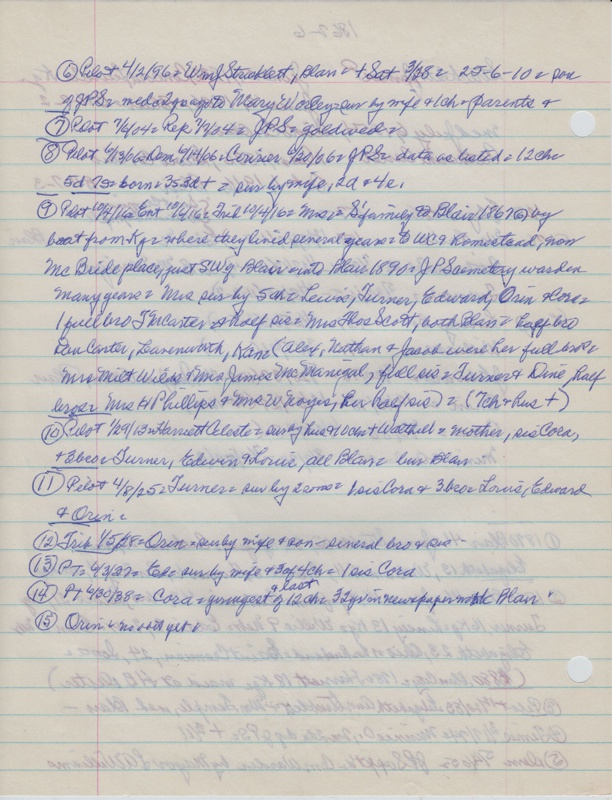 ⑥ Pilot 4/2/96 = Wm J Stricklett, Blair = + Sat 3/28 = 25-6-10 = son
of JPS = med 2y ago to Mary Worley = sur by wife & 1ch = parents &
⑦ Pilot 7/6/04 = Rep 7/7/04 = JPS = gold wed =
⑧ Pilot 6/13/06 = Dem 6/14/06 = Courier 6/20/06 = JPS = data as listed = 12 ch =
5d 7s = born = 3s 3d + = sur by wife, 2d & 4s.
⑨ Pilot 10/4/16 = Ent 10/6/16 = Trib 10/4/16 = Mrs = S family to Blair 1867 by
boat from Ky = where they lived several years = to WC & homestead, now
McBride place, just SW of Blair = into Blair 1890 = JPS cemetery warden
many years = Mrs sur by 5 ch = Lewis, Turner, Edward, Orin & Cora =
1 full bro T McCarter & half sis = Mrs Thos Scott, both Blair = half bro
Dan Carter, Leavenworth, Kans (Alex, Nathan & Jacob were her full bros =
Mrs Milt Wilds & Mrs James McManigal, full sis = Turner & Dine, half
bros = Mrs H Phillips & Mrs W Rogers, her half sis) = (7 ch & hus +)
⑩ Pilot 1/29/13 = Harriett Celeste = sur by hus & ch = mother, sis Cora,
+ 3 bros = Turner, Edwin & Louis, all Blair = bur Blair
⑪ Pilot 4/8/25 = Turner = sur by 2 sons = 1 sis Cora & 3 bros = Louis, Edward
& Orin =
⑫ Trib 1/5/28 = Orin = sur by wife & son = several bro & sis
⑬ PT = 4/3/37 = Ed = sur by wife & 3 of 4 ch = 1 sis Cora
⑭ Pt 6/30/38 = Cora = youngest & last of 12 ch = 32 yr in newspaper work Blair
⑮ Orin = no obit yet =